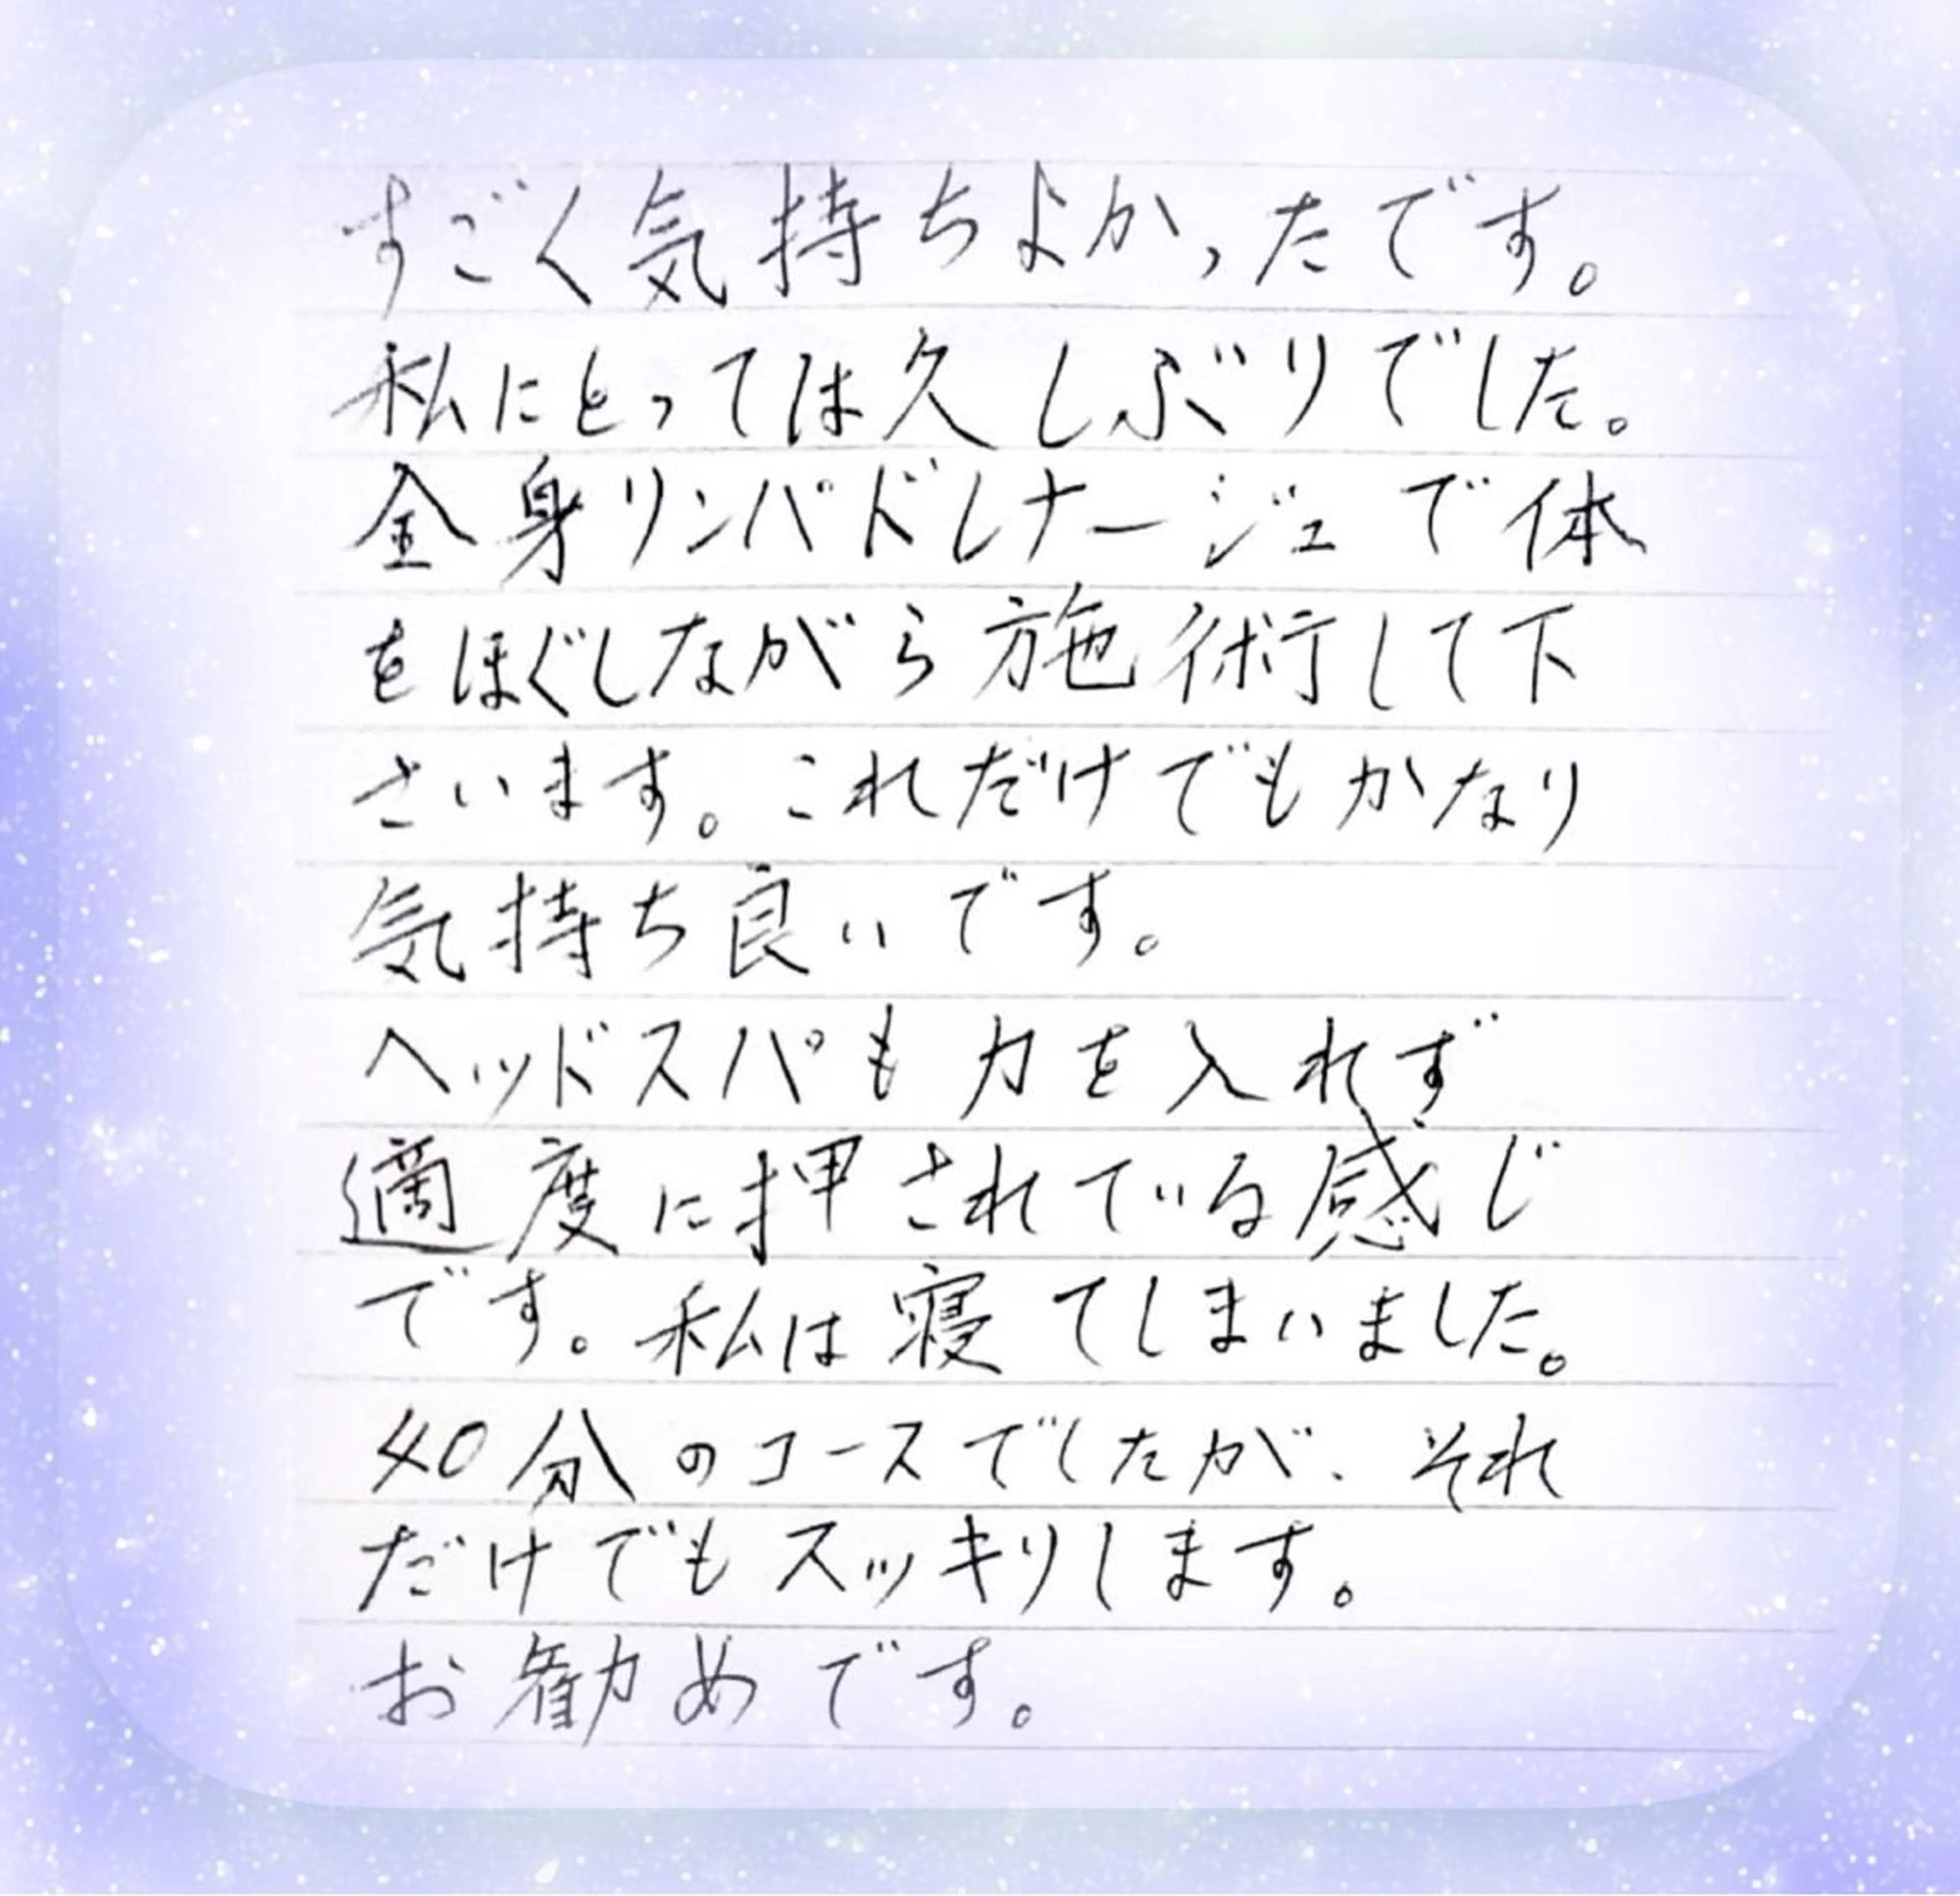 すごく気持ちよかったです。
私にとっては久しぶりでした。
全身リンパドレナージュで体
をほぐしながら施術して下
さいます。これだけでもかなり
気持ち良いです。
ヘッドスパも力を入れず
適度に押されている感じ
です。私は寝てしまいました。
40分のコースでしたが、それ
だけでもスッキリします。
お勧めです。